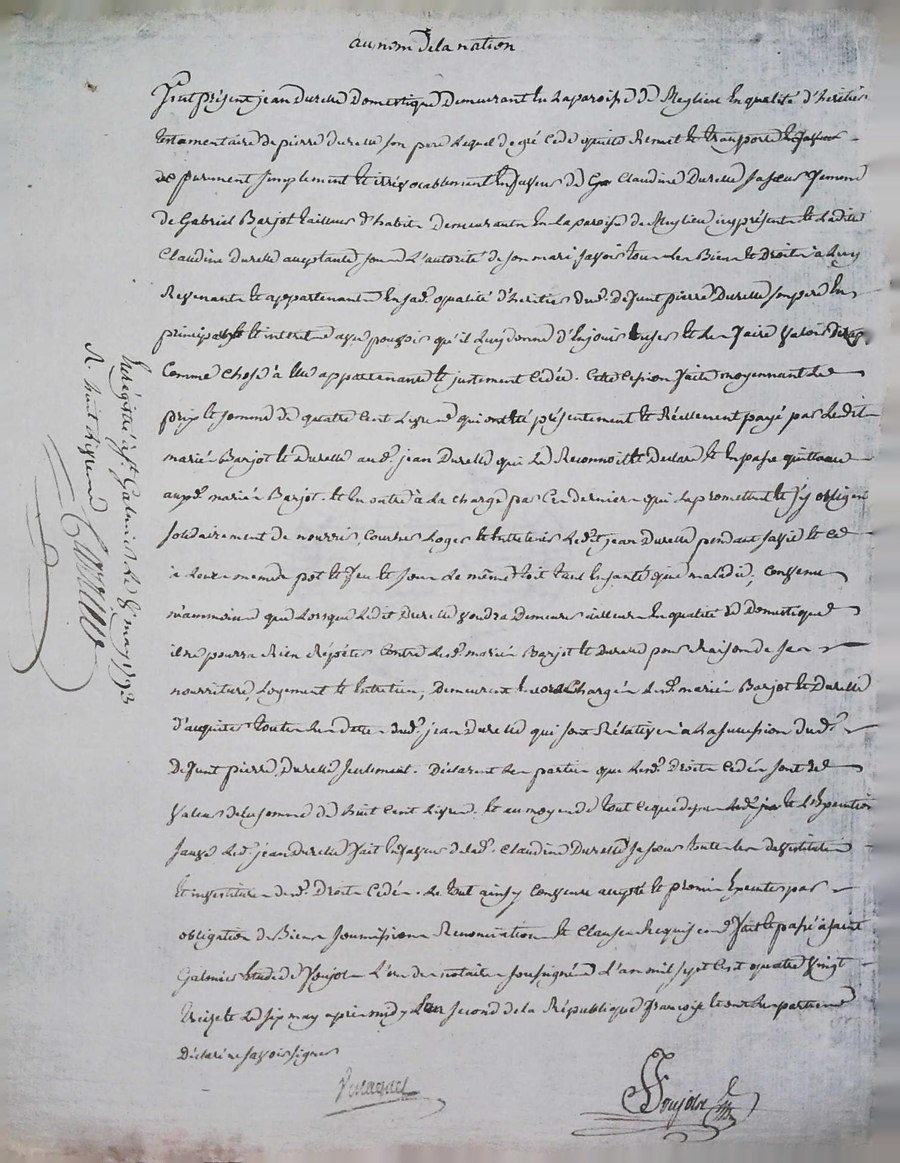 au nom de la nation
fut présent jean Durelle Domestique Demeurant En la paroisse de Meylieu En qualité d'heritier
testamentaire de pierre Durelle son pere Lequel de gré Cede quitte Remet et transporte
purement simplement et irrévocablement En faveur de Claudine Durelle sa sœur femme
de Gabriel Barjot tailleur d'habits Demeurants En la paroisse de Meylieu icy présente et Ladite
Claudine Durelle acceptante sous L'autorité de son mari savoir tous Les Biens et Droits à Luy
Revenants et appartenants En sad. qualité d'heritier dud. Defunt pierre Durelle son pere En
principal et interets avec pouvoir qu'il Luy donne d'En jouir user et Les faire valoir
Comme Chose à Elle appartenante et justement Cédée. Cette Cession faite moyennant Le
prix et somme de quatre Cent Livres qui ont été présentement et Réellement payé par Lesdits
mariés Barjot et Durelle aud. jean Durelle qui Le Reconnoit et Declare et En passe quittance
auxd. mariés Barjot. et En outre à La charge par Ces derniers qui La promettent et s'y obligent
solidairement de nourrir, Coucher Loger et Entretenir Ledit jean Durelle pendant sa vie et Ce
à Leurs memes pot et feu et sous Le même toit tant En santé que maladie; Convenu
néammoins que Lorsque Ledit Durelle voudra Demeurer ailleurs En qualité de Domestique
il ne pourra Rien Répéter Contre Lesd. mariés Barjot et Durelle pour Raison de ses
nourriture, Logement et Entretien; Demeurent Encore Chargés Lesd. mariés Barjot et Durelle
d'acquiter toutes Les dettes dud. jean Durelle qui sont Rélatives à La succession dud.
Defunt pierre Durelle seulement. Déclarent Les parties que Lesd. Droits Cédés sont de
valeur de La somme de huit Cent Livres. et au moyen de tout Ce que dessus et L'Exécution
sauve Led. jean Durelle fait En faveur de lad. Claudine Durelle sa sœur toutes Les devestitures
et investitures desd. Droits Cédés. Le tout ainsy Convenu accepté et promis Executer par
obligation de Biens soumissions Renonciations et Clauses Requises fait et passé à saint
Galmier Etude de Foujols L'un des notaires soussignés L'an mil sept Cent quatre vingt
treize et Le six may après midy L'an second de la République françoise et ont Les parties
Déclaré ne savoir signer
Foujols
Enregistré à St. Galmier Le 8 may 1793
R. huit Livres